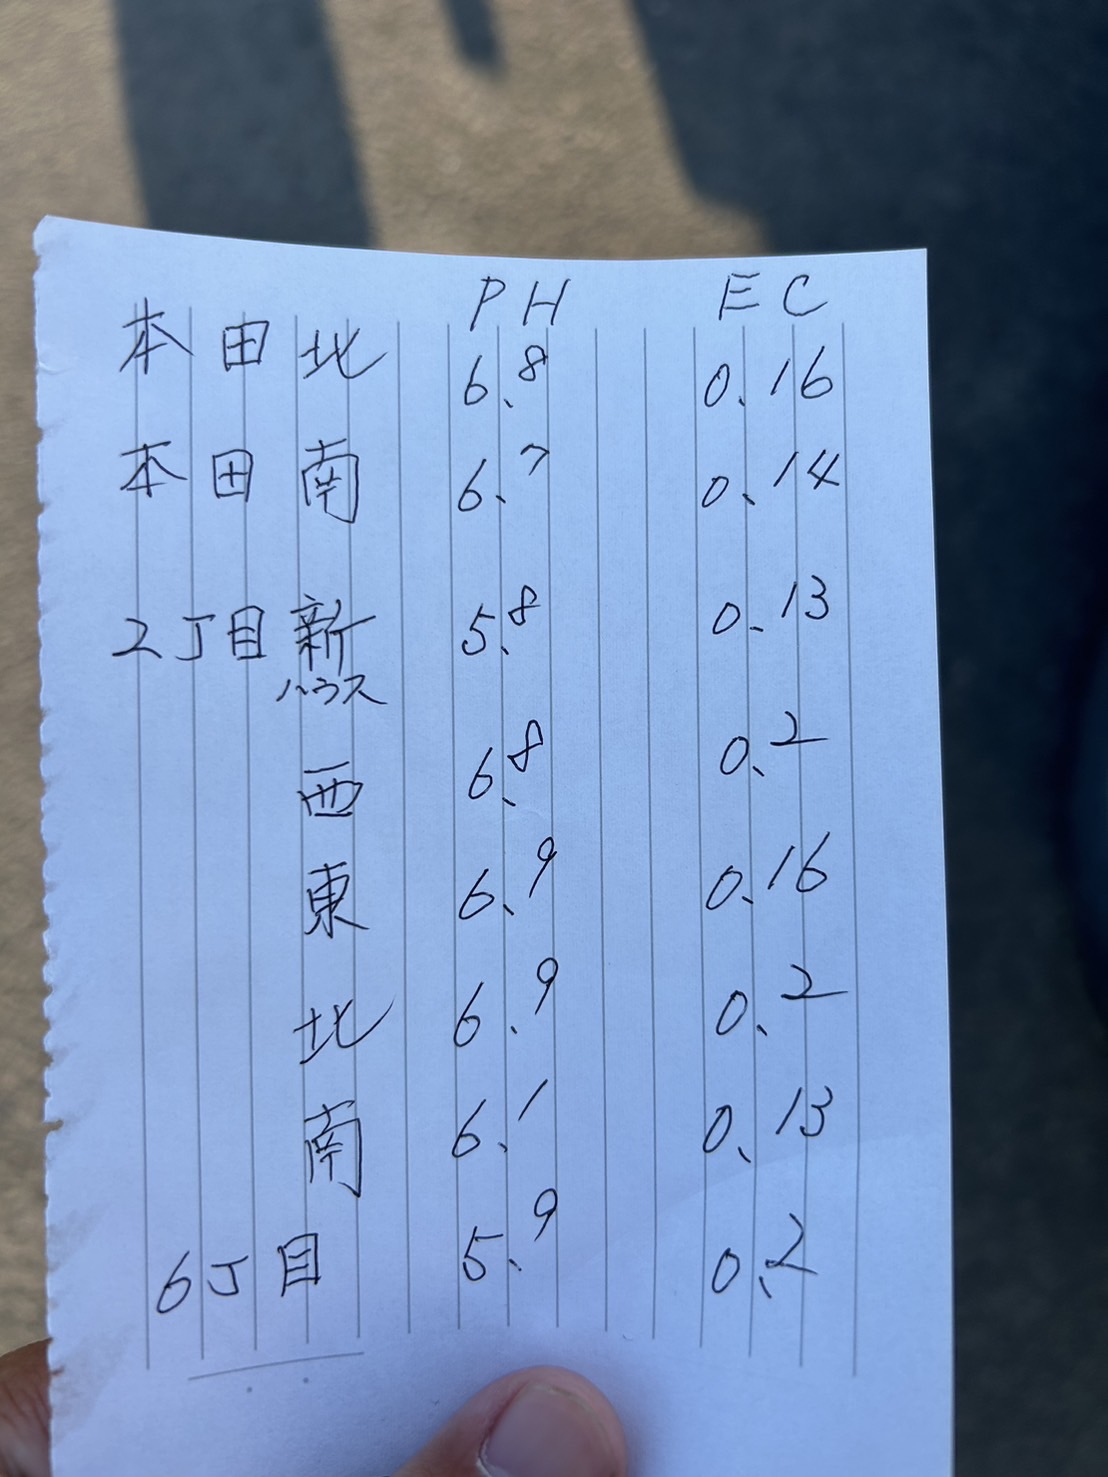 PH EC
本田北 6.8 0.16
本田南 6.7 0.14
2丁目新 5.8 0.13
ハウス
西 6.8 0.2
東 6.9 0.16
北 6.9 0.2
南 6.1 0.13
6丁目 5.9 0.2